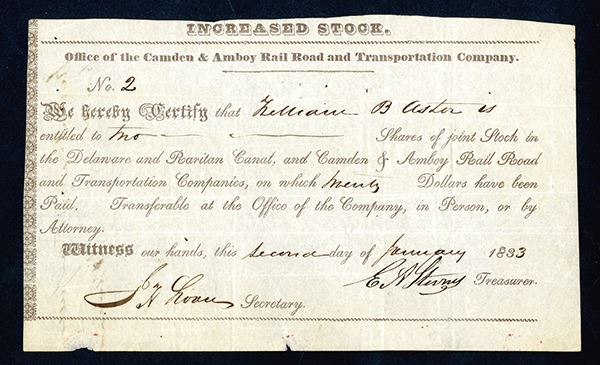 INCREASED STOCK.
Office of the Camden & Amboy Rail Road and Transportation Company.
No. 2
We hereby Certify that William B Astor is
entitled to two Shares of joint Stock in
the Delaware and Raritan Canal, and Camden & Amboy Rail Road
and Transportation Companies, on which twenty Dollars have been
Paid. Transferable at the Office of the Company, in Person, or by
Attorney.
Witness our hands, this second day of January 1833
E A Stevens Treasurer.
Secretary.